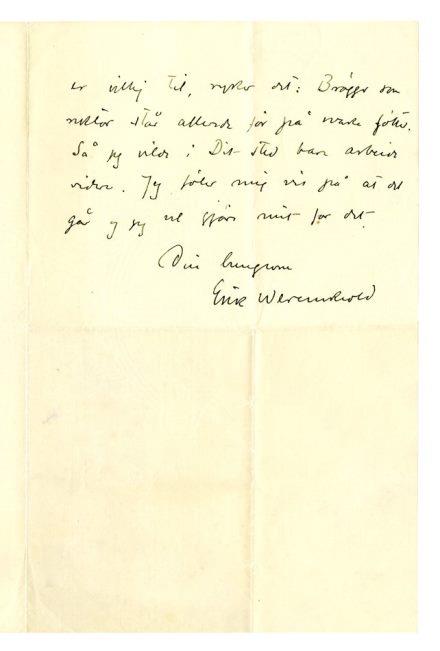 er villig til, rykker det: Brøgger som
rektor står allerede før på svake føtter.
Så jeg vilde i Dit sted bare arbeide
videre. Jeg føler mig vis på at det
går og jeg vil gjøre mit for det.
Din hengivne
Erik Werenskiold